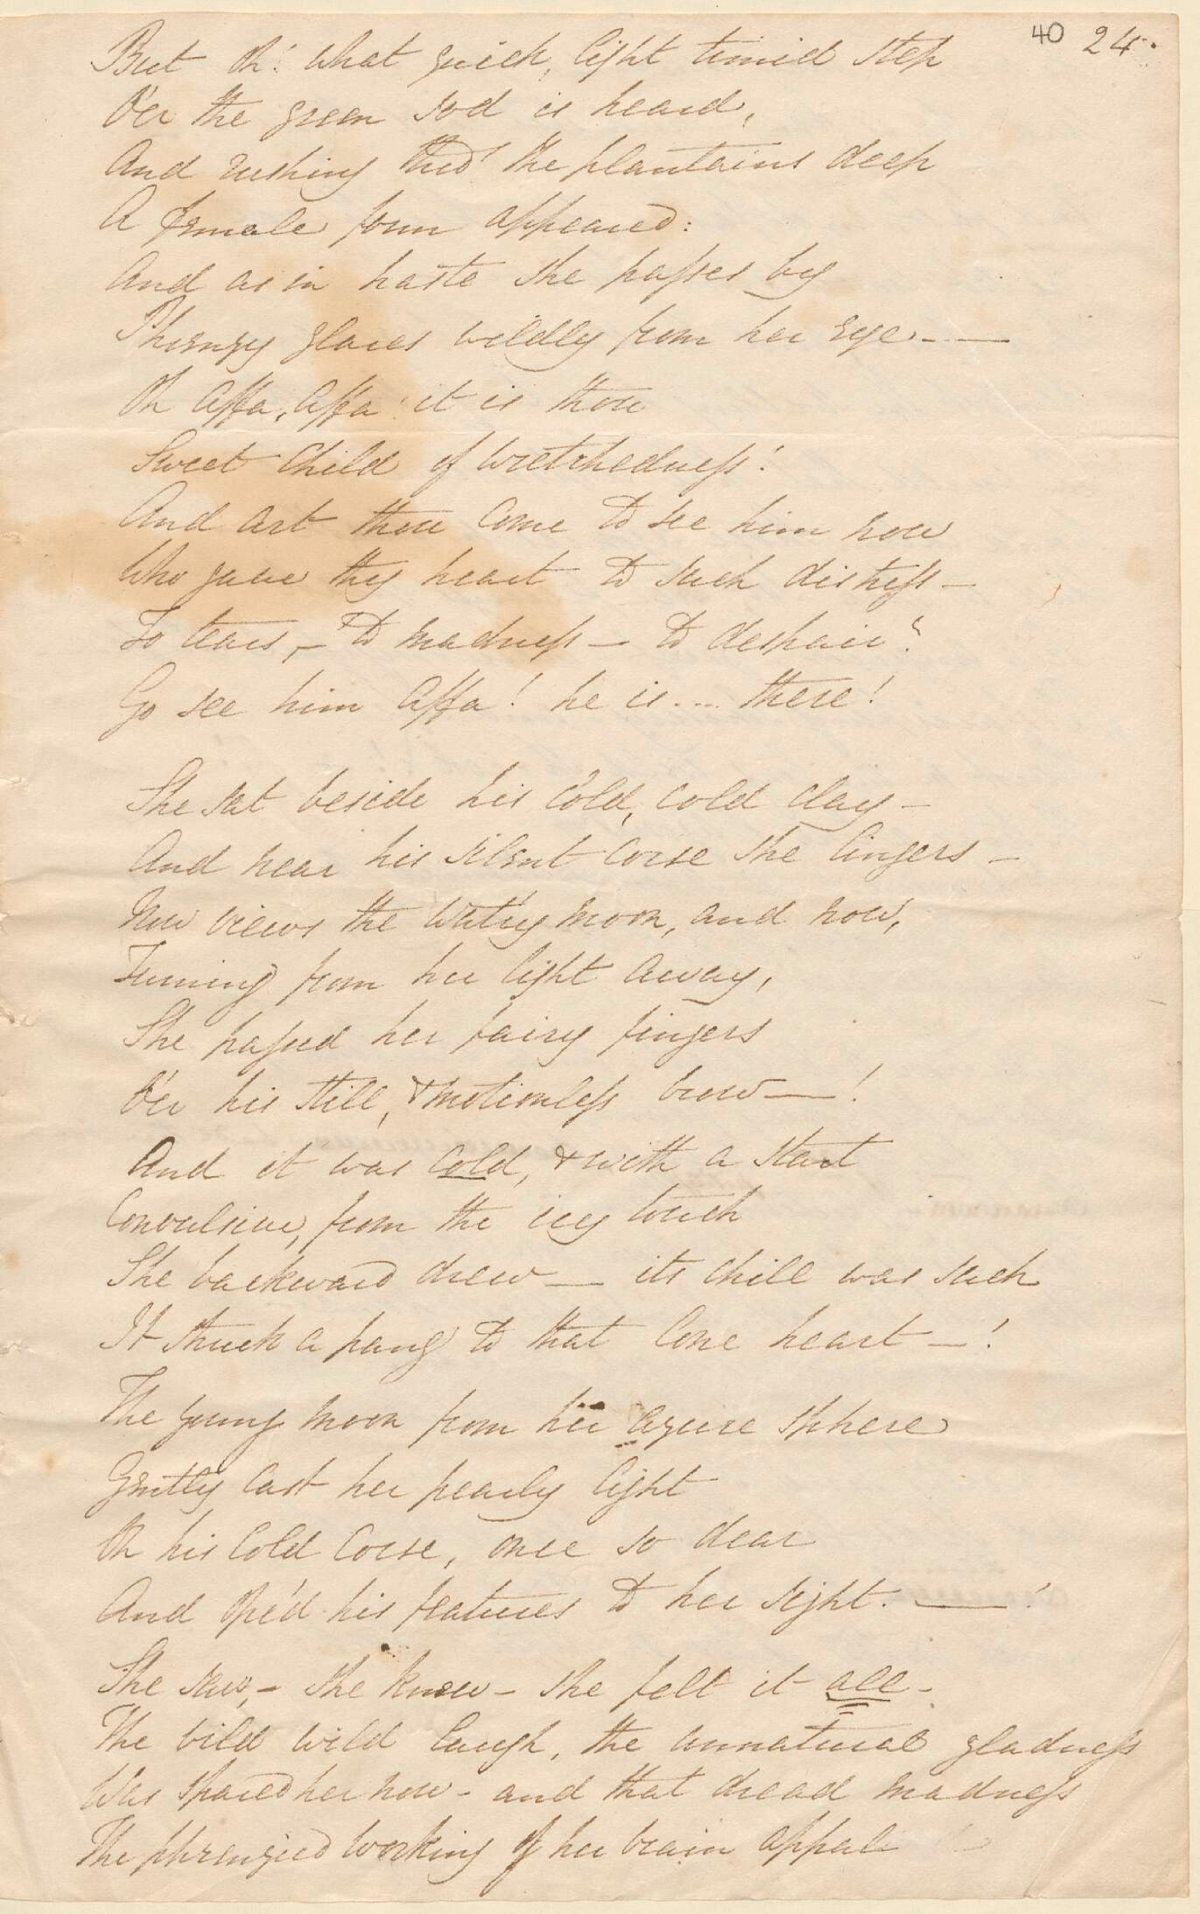 40 24.
But oh! what quick, light timid step
O'er the green sod is heard,
And rushing thro' the plantains deep
A female form appeared:
And as in haste she passes by
Phrenzy glares wildly from her eye. —
Oh Affa, Affa! it is thou
Sweet Child of wretchedness!
And art thou come to see him now
Who gave thy heart to such distress —
To tears, — to madness — to despair?
Go see him Affa! he is.... there!
She sat beside his cold, cold clay —
And near his silent corse she lingers —
Now views the wat'ry moon, and now,
Turning from her light away,
She passed her fairy fingers
O'er his still, & motionless brow — !
And it was cold, & with a start
Convulsive, from the icy touch
She backward drew — its chill was such
It struck a pang to that lone heart — !
The young moon from her azure sphere
Gently cast her pearly light
On his cold corse, once so dear
And ope'd his features to her sight. — !
She saw, — she knew — she felt it all —
The wild wild laugh, the unnatural gladness
Was spared her now — and that dread madness
The phrenzied working of her brain appal